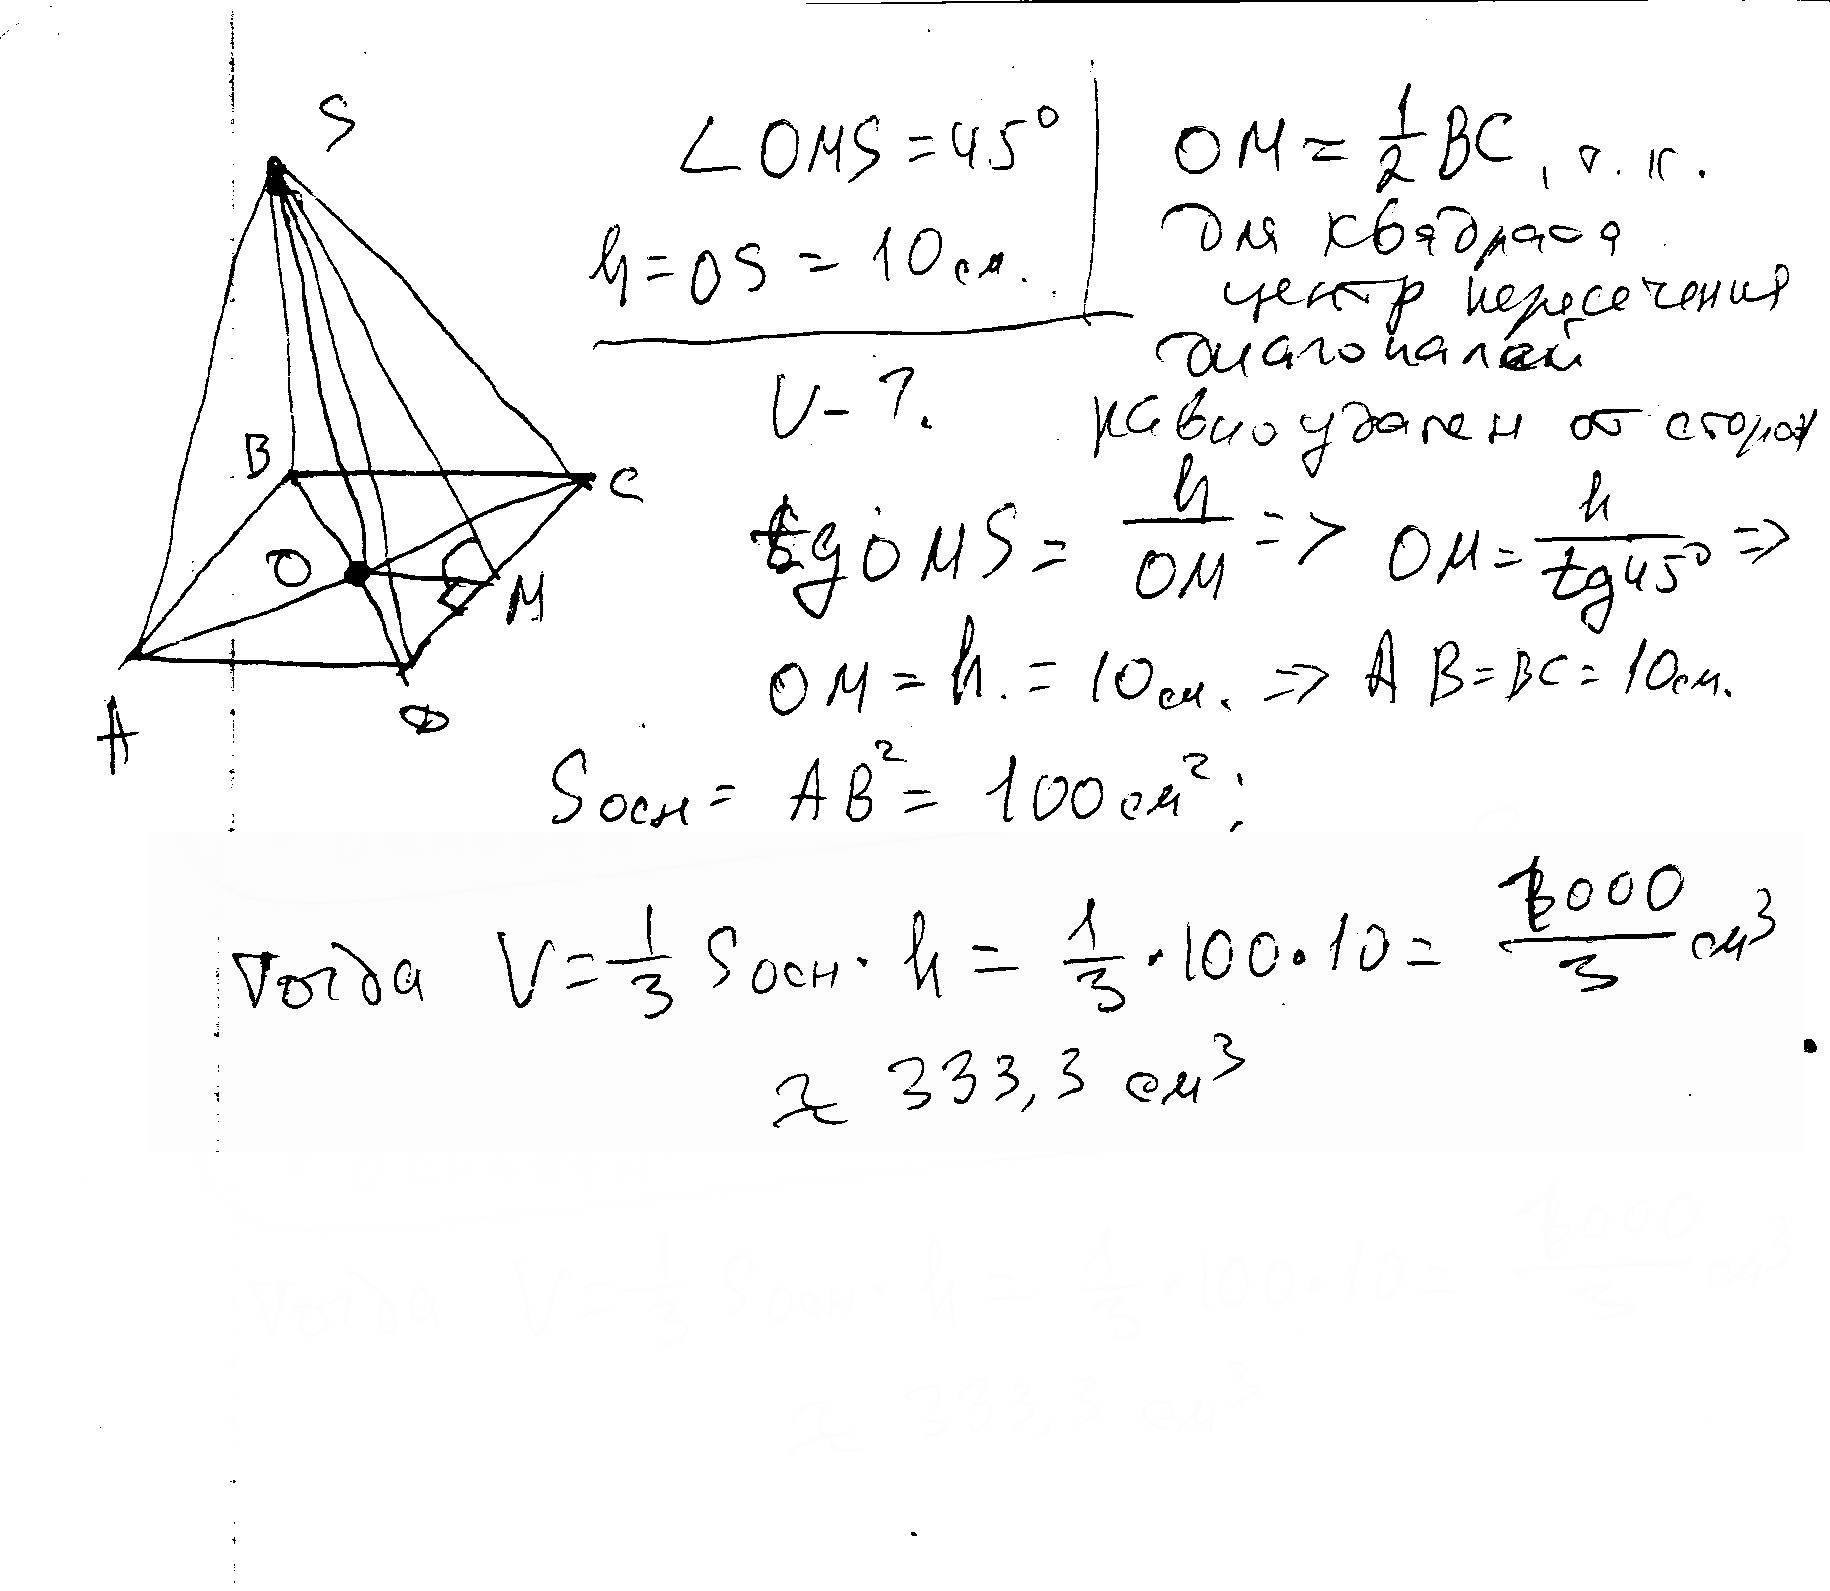 S
∠OMS = 45°
h = OS = 10 см.
V - ?.
OM = 1/2 BC, т.к.
для квадрата
центр пересечения
диагоналей
равноудален от сторон
B
C
O
M
A
D
tg OMS = h/OM => OM = h/tg45° =>
OM = h. = 10 см. => AB = BC = 10 см.
Sосн = AB² = 100 см²;
тогда V = 1/3 Sосн · h = 1/3 · 100 · 10 = 1000/3 см³
≈ 333,3 см³